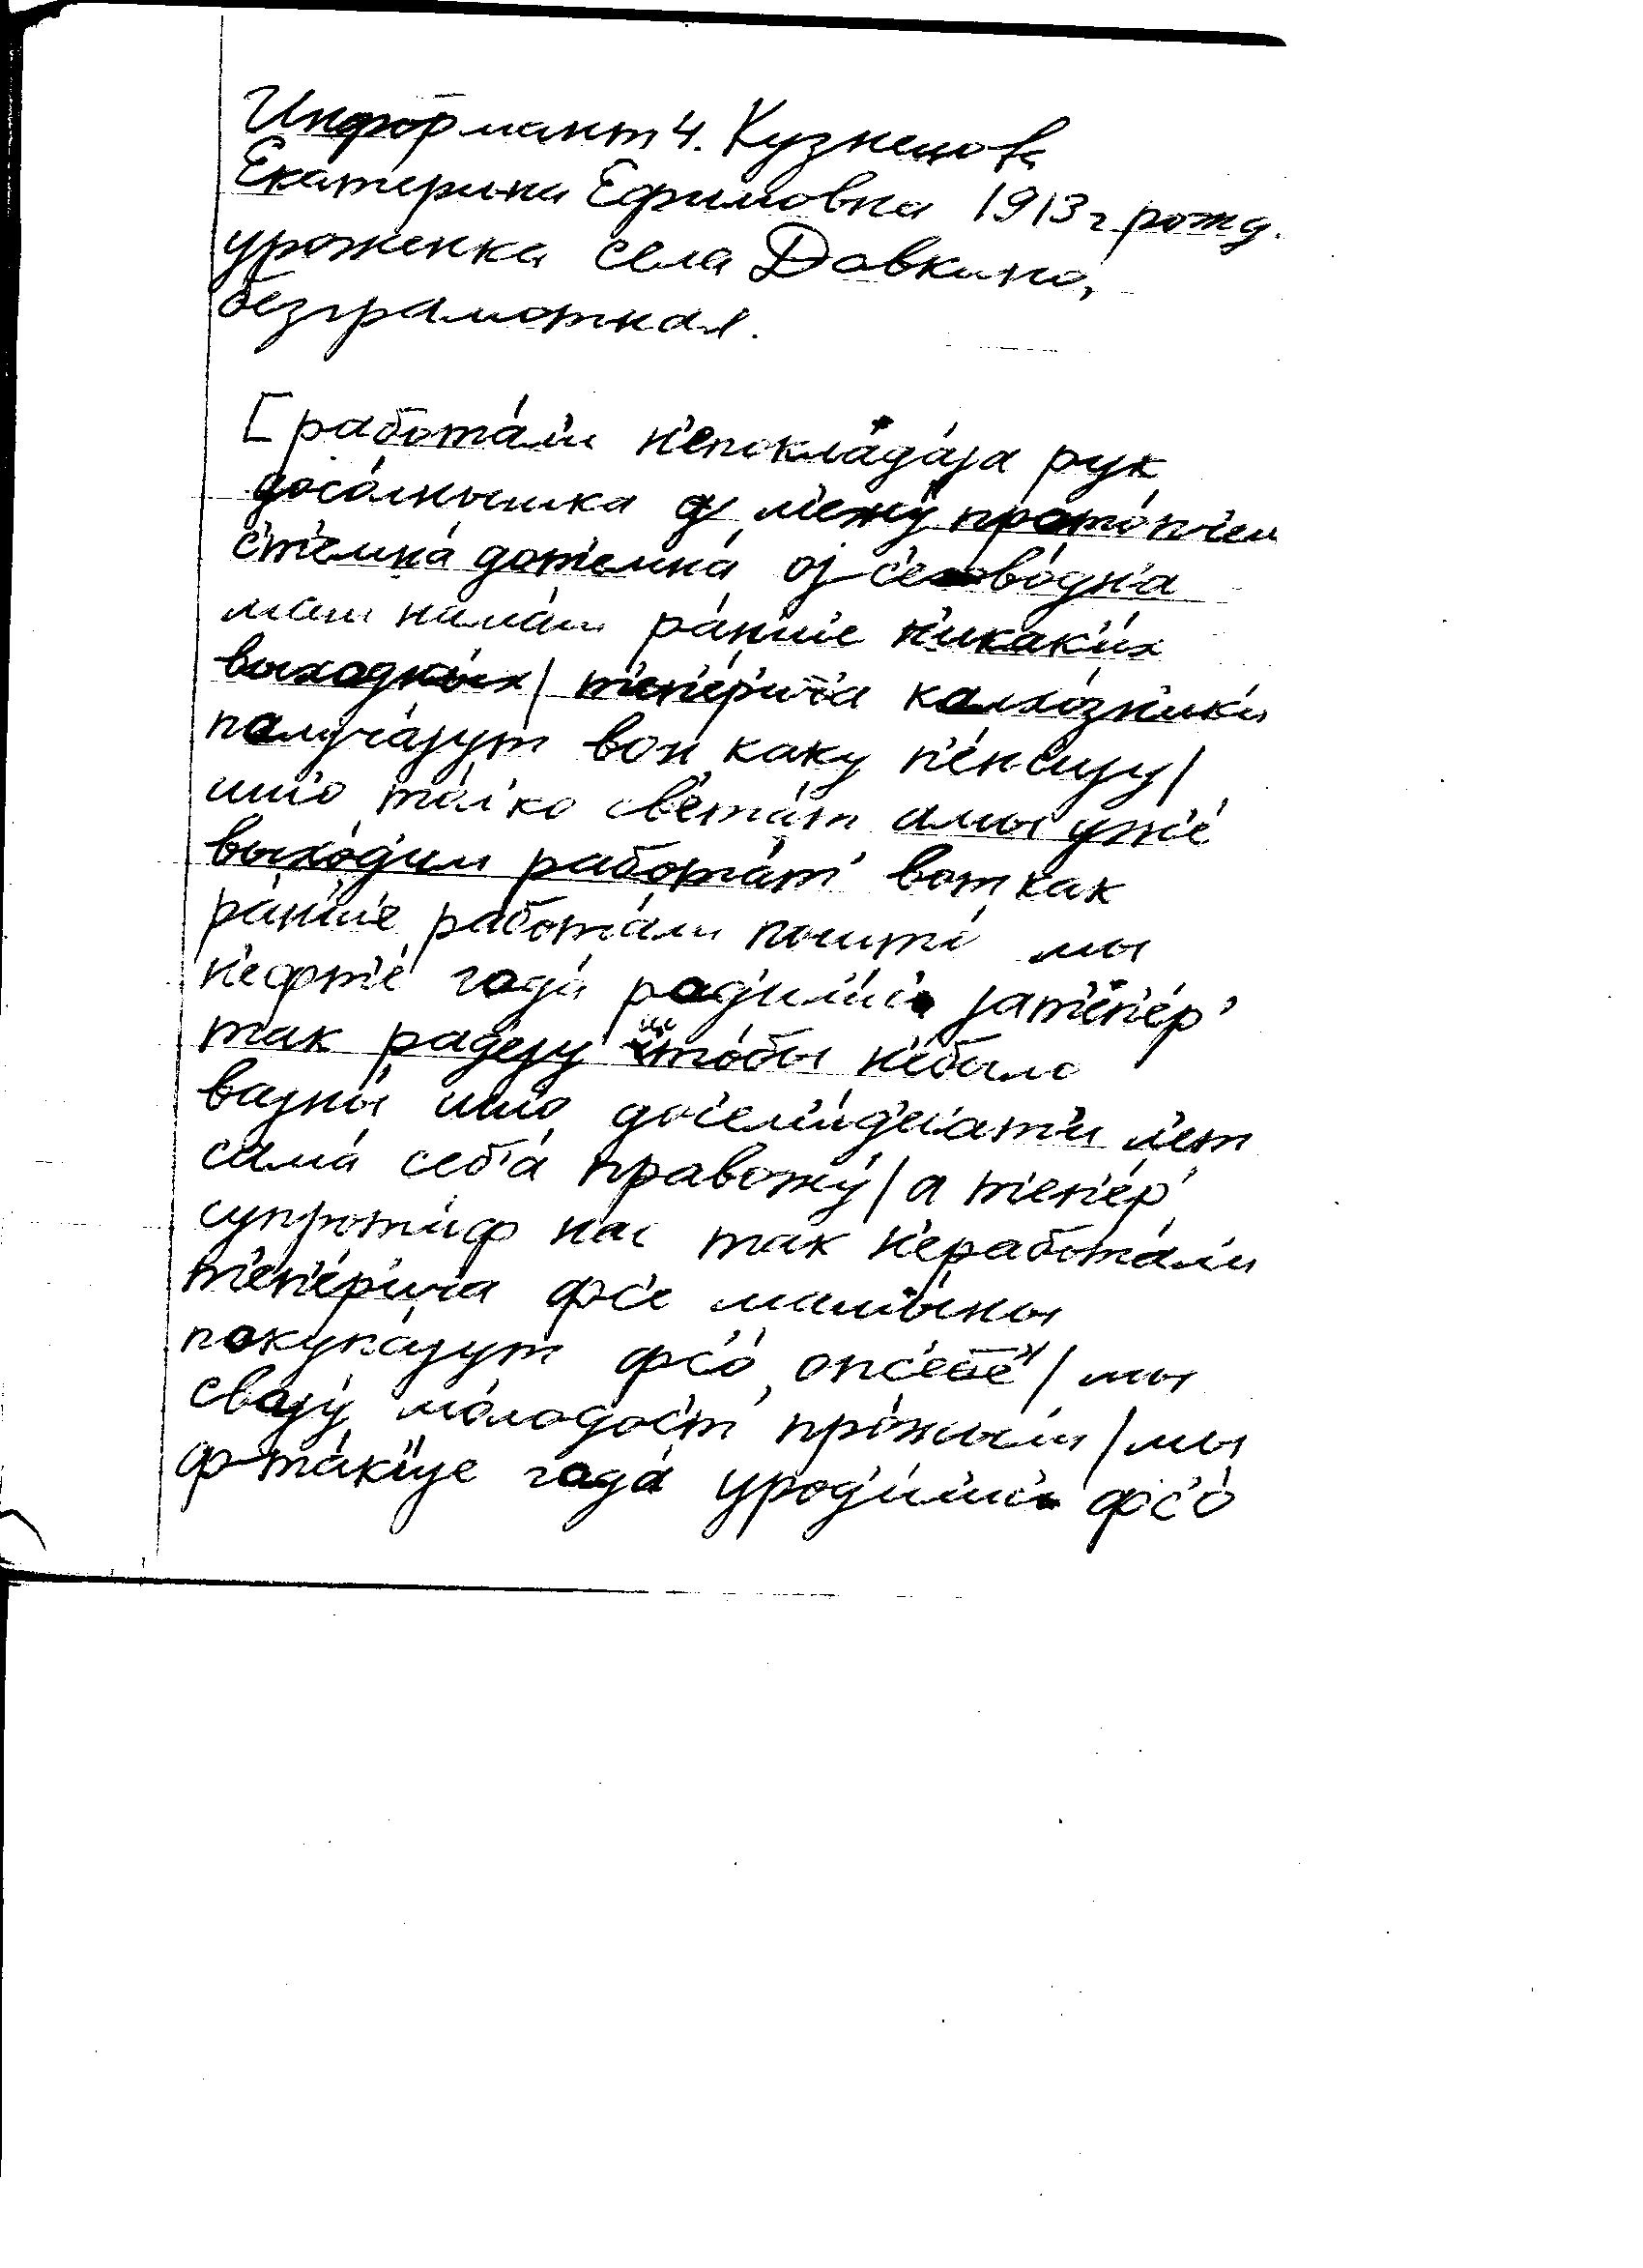 Информант 4. Кузнецова
Екатерина Ефимовна 1913 г рожд.
уроженка села Давкино,
безграмотная.
[ работа́л'и н'епоклада́jа рук
досо́лнышка межу́ прото́пч'ем
с'т'емна́ дот'емна́ оj
ра́н'ше н'икак'и́х
выходны́х / т'еп'е́р'ича калхо́зн'ик'и
палуча́jут вон каку п'е́нс'иjу /
ишо то́л'ко св'ета́т амы уж'е́
выхо́д'им работа́т' вот как
ра́н'ше работа́ли мы
н'ефт'е́ года́ рад'и́л'ис' jат'еп'е́р'
так рад'еjу што́бы н'е́было
вайны́ ишо дос'ем'и́д'ес'ат'и л'ет
сама́ себ'а́ правожу́ / а т'еп'е́р'
супрот'и́ф нас так н'ерабо́тал'и
т'еп'е́р'ича фс'е машы́ны
покупа́jут фс'о опс'еб'е́ / мы
сваjу́ мо́лодос'т' про́жыл'и / мы
ф-та́к'иjе года́ урод'и́л'ис' фс'о́